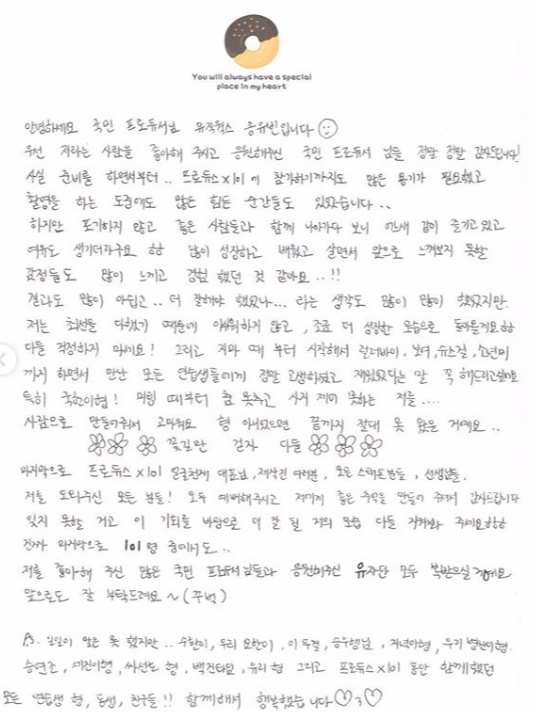 You will always have a special
place in my heart
안녕하세요 국민 프로듀서님 뮤직웍스 송유빈입니다
우선 저라는 사람을 좋아해 주시고 응원해주신 국민 프로듀서 님들 정말 정말 감사드립니다!
사실 준비를 하면서부터.. 프로듀스 X 101 에 참가하기까지도 많은 용기가 필요했고
촬영을 하는 도중에도 많은 힘든 순간들도 있었습니다..
하지만 포기하지 않고 좋은 사람들과 함께 나아가다 보니 어느새 같이 즐기고 있고
여유도 생기더라구요 하하 많이 성장하고 배웠고 살면서 앞으로 느껴보지 못할
감정들도 많이 느끼고 경험 했던 것 같아요..!!
결과도 많이 아쉽고.. 더 잘해야 했었나... 라는 생각도 많이 많이 했었지만.
저는 최선을 다했기 때문에 아쉬워하지 않고, 조금 더 성장한 모습으로 돌아올게요 하하
다들 걱정하지 마세요! 그리고 지마 때 부터 시작해서 럴러바이, 보더, 유스걸, 소년미
까지 하면서 만난 모든 연습생들에게 정말 고생하셨고 재밌었다는 말 꼭 해드리고싶어요
특히 국헌이형! 마믿 때부터 춤 못추고 사실 재미 못하는 저를....
사람으로 만들어줘서 고마워요 형 아니었으면 끝까지 절대 못 왔을 거예요..
꽃길만 걷자 다들
마지막으로 프로듀스 X 101 얼굴천재 대표님, 제작진 여러분, 모든 스태프분들, 선생님들.
저를 도와주신 모든 분들! 모두 예뻐해주시고 저에게 좋은 추억을 만들어 주셔서 감사드립니다
잊지 못할 거고 이 기회를 바탕으로 더 잘 될 저의 모습 다들 지켜봐 주세요 하하하
진짜 마지막으로 101명 중에서도..
저를 좋아해 주신 많은 국민 프로듀서님들과 응원해주신 유자단 모두 복받으실거예요
앞으로도 잘 부탁드려요~ (꾸벅)
P.S. 일일이 말은 못 했지만.. 수환이, 우리 요한이, 이 두절, 승우행님, 진혁이형, 우기 병찬이형.
송연조, 세진이형, 싸선도 형, 백진타임, 유리 형 그리고 프로듀스 X 101 동안 함께했던
모든 연습생 형, 동생, 친구들!! 함께해서 행복했습니다 ♡3♡